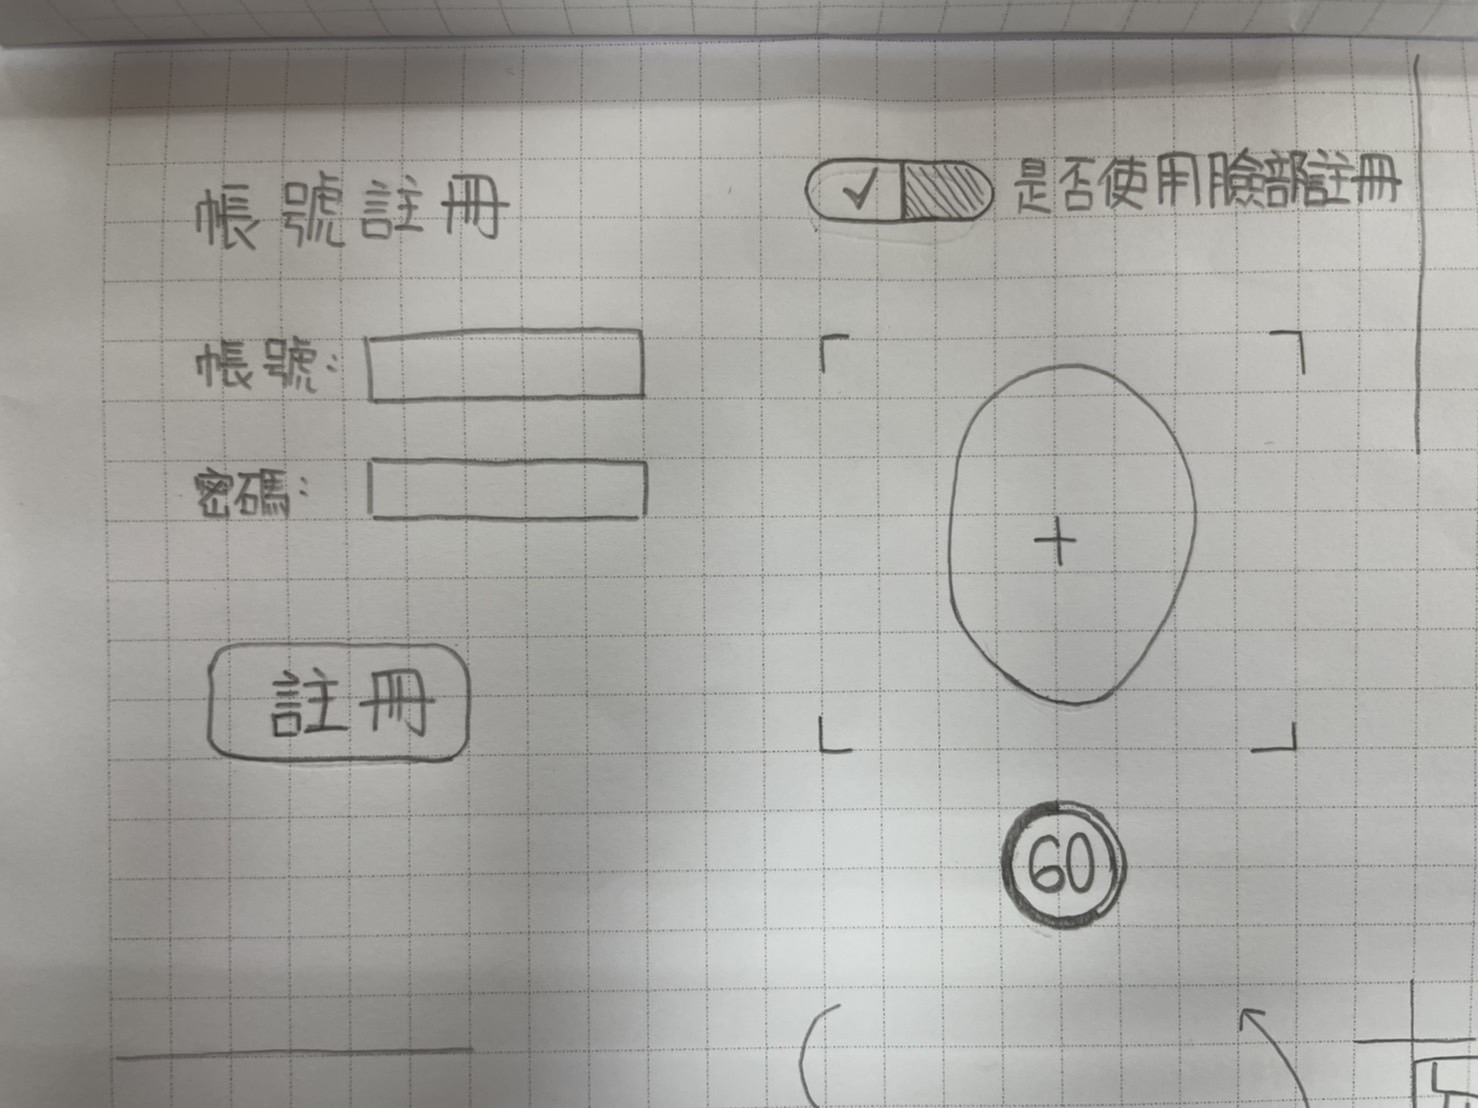 帳號註冊
帳號:
密碼:
註冊
是否使用臉部註冊
60